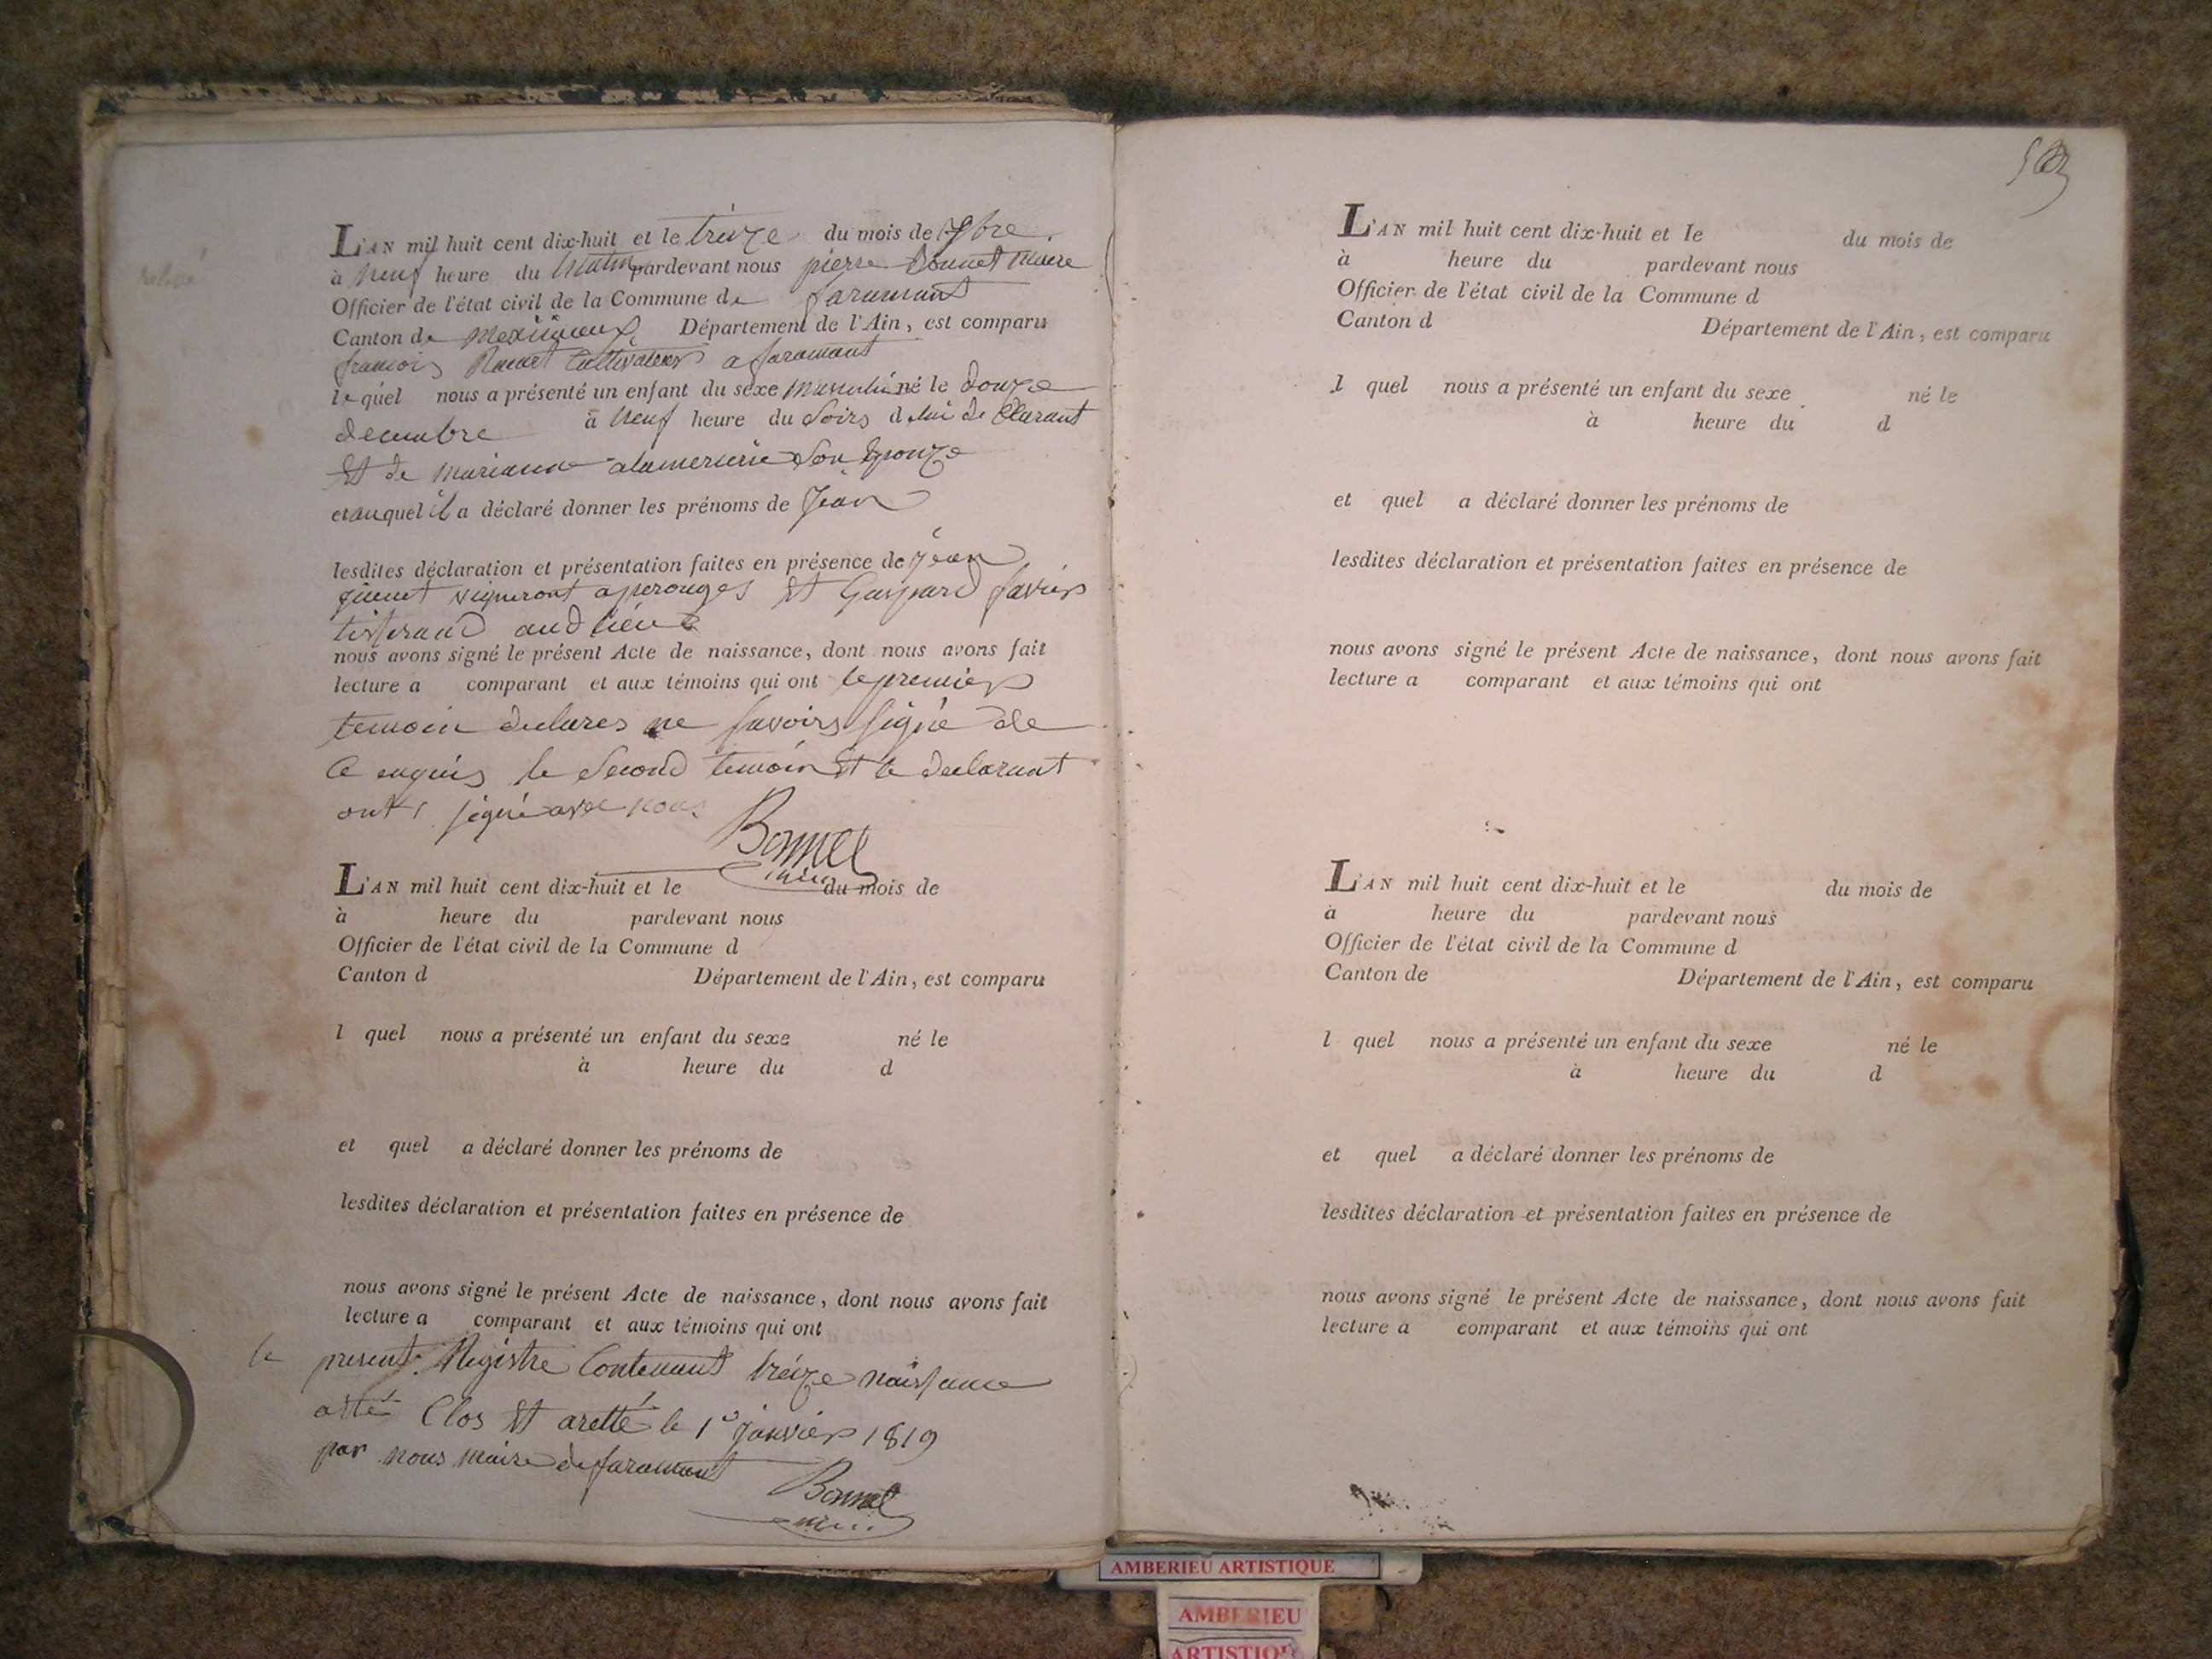 L'AN mil huit cent dix-huit et le treize du mois de
à neuf heure du matin pardevant nous pierre Bonnet maire
Officier de l'état civil de la Commune de faramant
Canton de meximieux Département de l'Ain, est comparu
francois cultivateur a faramant
lequel nous a présenté un enfant du sexe masculin né le douze
decembre à neuf heure du soirs de lui declarant
Et de marianne son Epouze
et auquel il a déclaré donner les prénoms de jean
lesdites déclaration et présentation faites en présence de jean
vigneront a perouges Et Gaspard favier
tisserand aud lieu
nous avons signé le présent Acte de naissance, dont nous avons fait
lecture a comparant et aux témoins qui ont le premier
temoin declares ne savoirs signé de
ce enquis le second temoin Et le declarant
ont signé avec nous
Bonnet
L'AN mil huit cent dix-huit et le du mois de
à heure du pardevant nous
Officier de l'état civil de la Commune d
Canton d Département de l'Ain, est comparu
l quel nous a présenté un enfant du sexe né le
à heure du d
et quel a déclaré donner les prénoms de
lesdites déclaration et présentation faites en présence de
nous avons signé le présent Acte de naissance, dont nous avons fait
lecture a comparant et aux témoins qui ont
le present Registre Contenant treize naissance
a été Clos Et aretté le 1e janvier 1819
par nous maire de faramant
Bonnet
L'AN mil huit cent dix-huit et le du mois de
à heure du pardevant nous
Officier de l'état civil de la Commune d
Canton d Département de l'Ain, est comparu
l quel nous a présenté un enfant du sexe né le
à heure du d
et quel a déclaré donner les prénoms de
lesdites déclaration et présentation faites en présence de
nous avons signé le présent Acte de naissance, dont nous avons fait
lecture a comparant et aux témoins qui ont
L'AN mil huit cent dix-huit et le du mois de
à heure du pardevant nous
Officier de l'état civil de la Commune d
Canton de Département de l'Ain, est comparu
l quel nous a présenté un enfant du sexe né le
à heure du d
et quel a déclaré donner les prénoms de
lesdites déclaration et présentation faites en présence de
nous avons signé le présent Acte de naissance, dont nous avons fait
lecture a comparant et aux témoins qui ont
AMBERIEU ARTISTIQUE
AMBERIEU